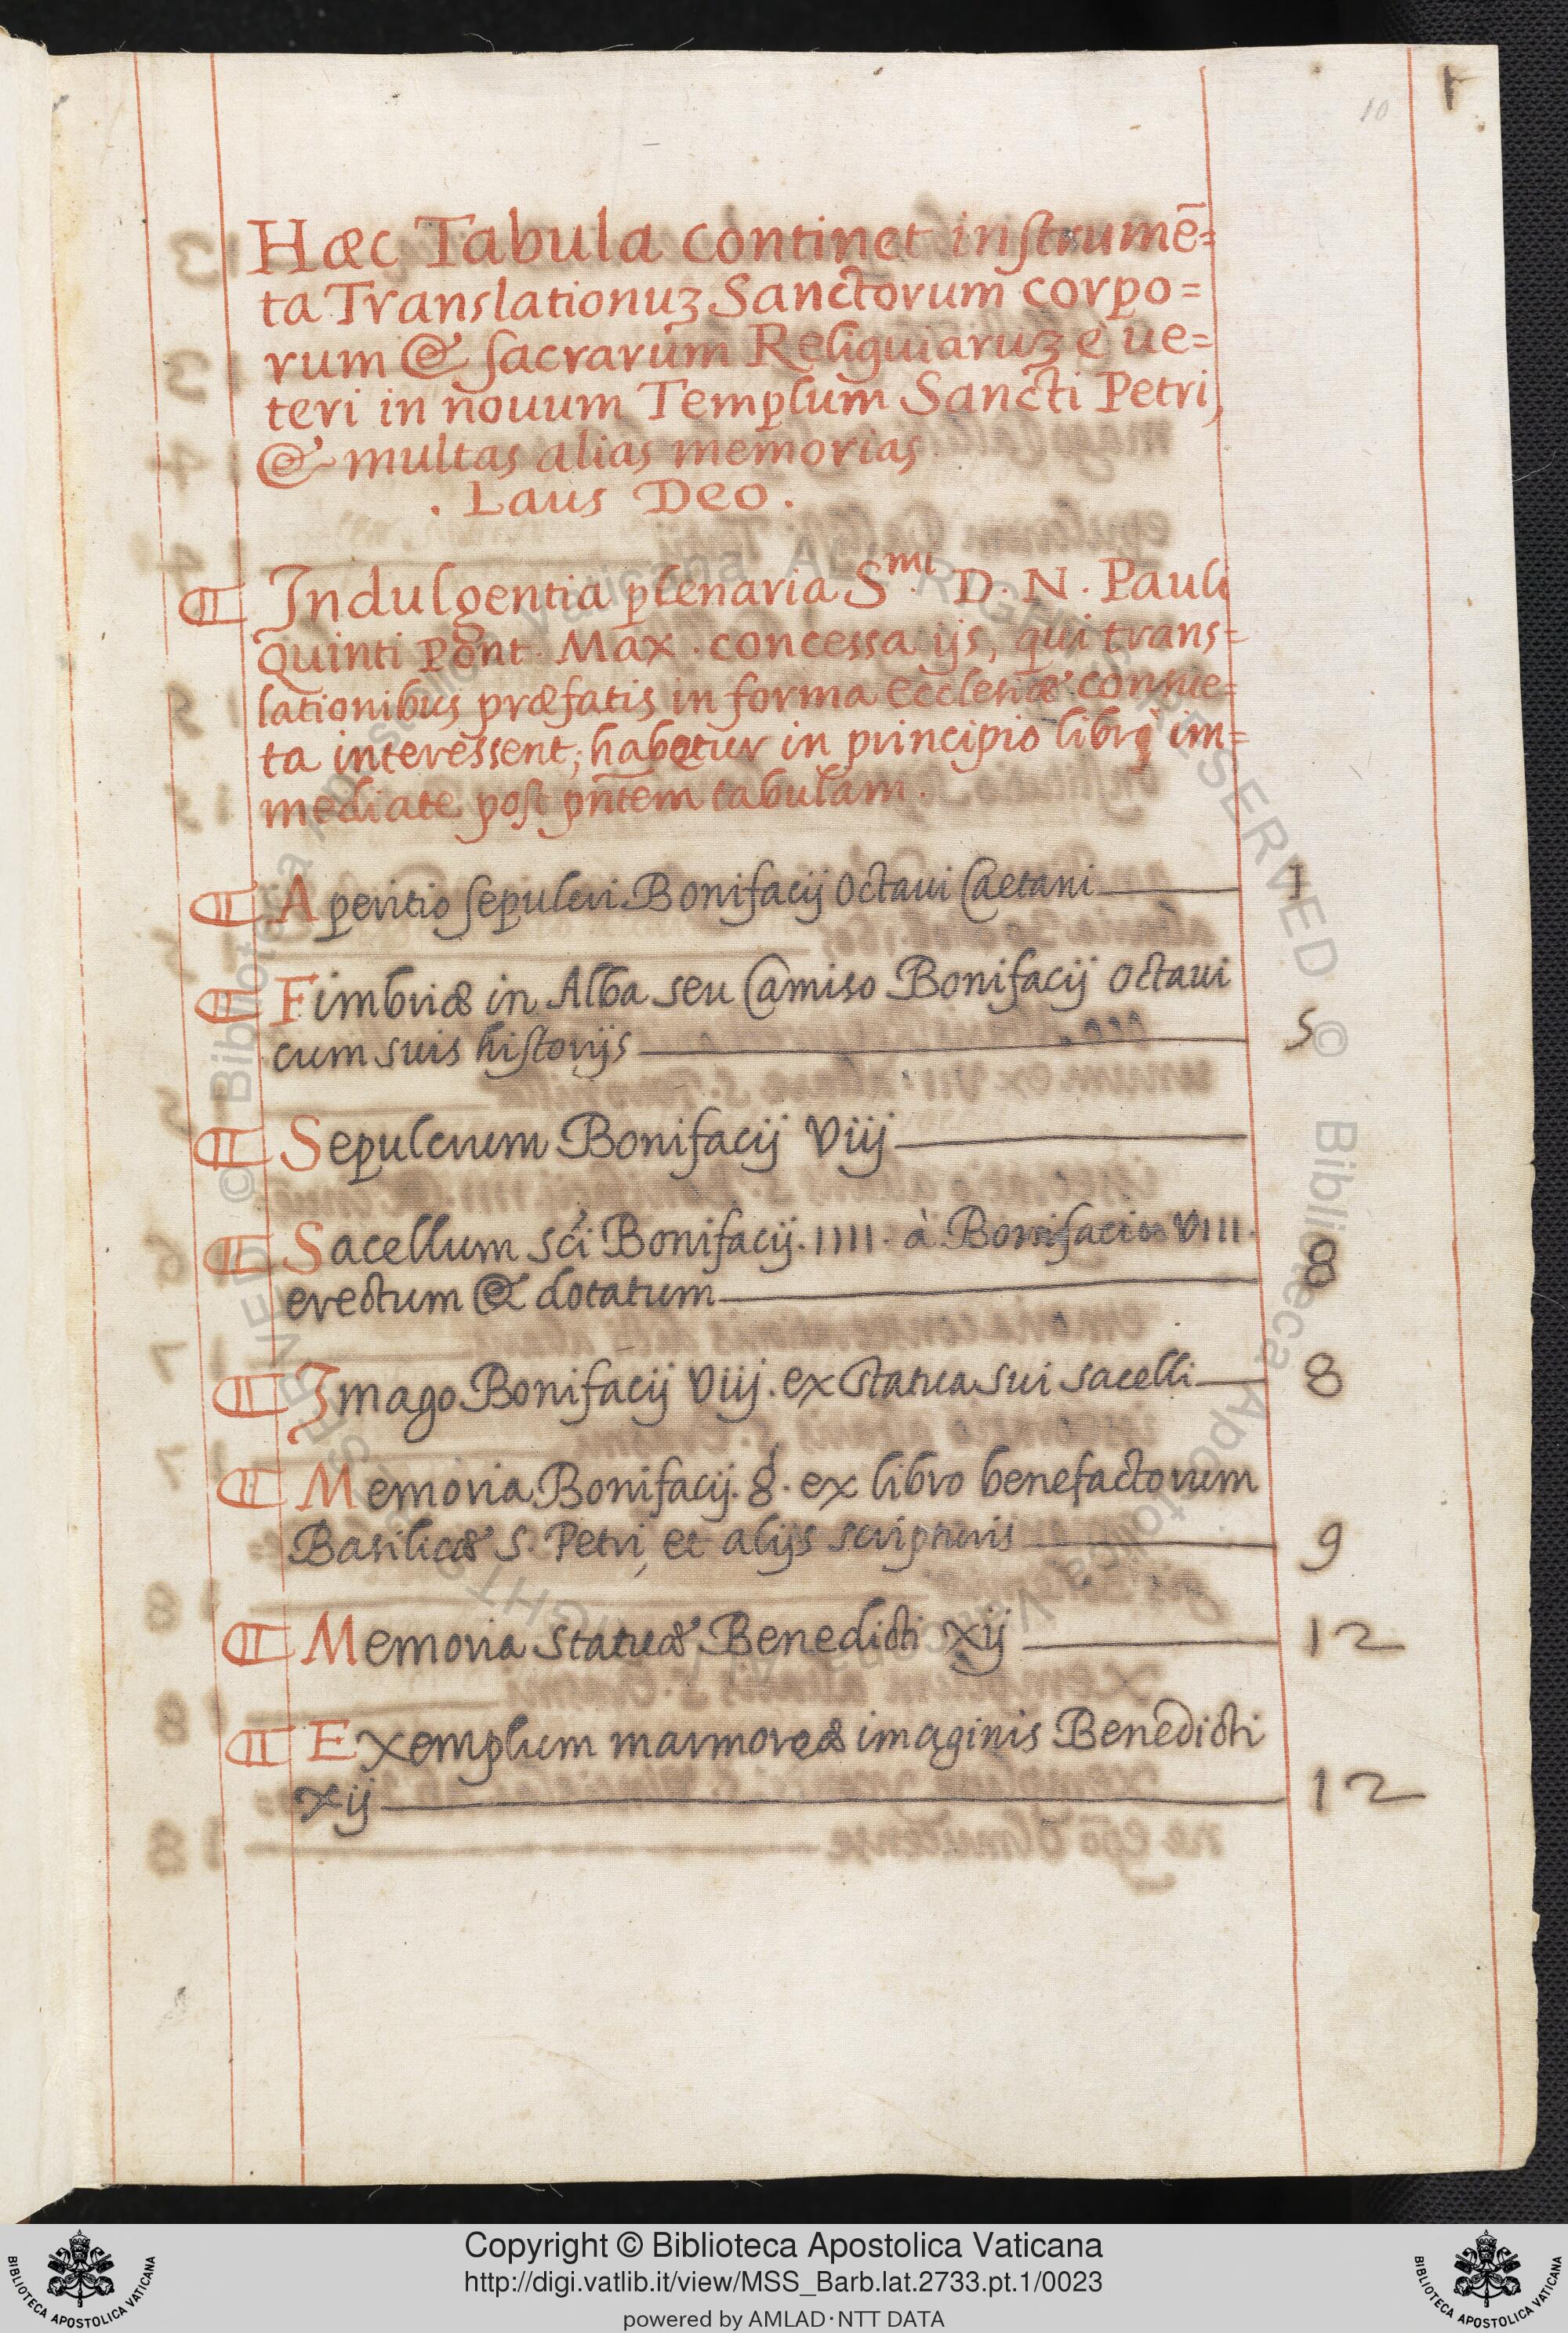 10
Hæc Tabula continet instrumē=
ta Translationuꝫ Sanctorum corpo=
rum & sacrarum Reliquiaruꝫ è ue=
teri in nouum Templum Sancti Petri,
& multas alias memorias
. Laus Deo .
¶ Indulgentia plenaria S.mi D. N. Pauli
Quinti Pont. Max. concessa ijs, qui trans=
lationibus præfatis in forma Ecclesiæ consue=
ta interessent; habetur in principio libri im=
mediate post pñtem tabulam.
¶ Aperitio sepulcri Bonifacij Octaui Caetani 1
¶ Fimbriæ in Alba seu Camiso Bonifacij Octaui
cum suis historijs 5
¶ Sepulcrum Bonifacij Viij
¶ Sacellum sc̃i Bonifacij. IIII. à Bonifacio VIII.
erectum & dotatum 8
¶ Imago Bonifacij Viij. ex statua sui sacelli 8
¶ Memoria Bonifacij. 8. ex libro benefactorum
Basilicæ S. Petri, et alijs scripturis 9
¶ Memoria statuæ Benedicti xij 12
¶ Exemplum marmoreæ imaginis Benedicti
xij 12
© Biblioteca Apostolica Vaticana ALL RIGHTS RESERVED © Biblioteca Apostolica Vaticana ALL RIGHTS RESERVED
BIBLIOTECA APOSTOLICA VATICANA
Copyright © Biblioteca Apostolica Vaticana
http://digi.vatlib.it/view/MSS_Barb.lat.2733.pt.1/0023
powered by AMLAD·NTT DATA
BIBLIOTECA APOSTOLICA VATICANA